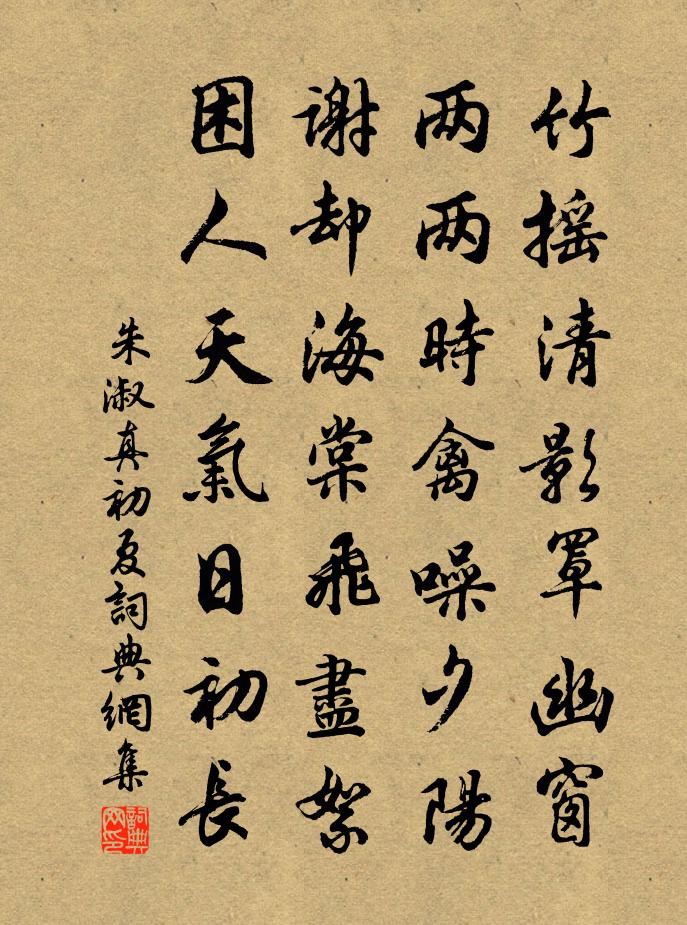 竹摇清影罩幽窗
两两時禽噪夕陽
謝却海棠飛盡絮
困人天氣日初長
朱淑真初夏詞典網集
詞典网印